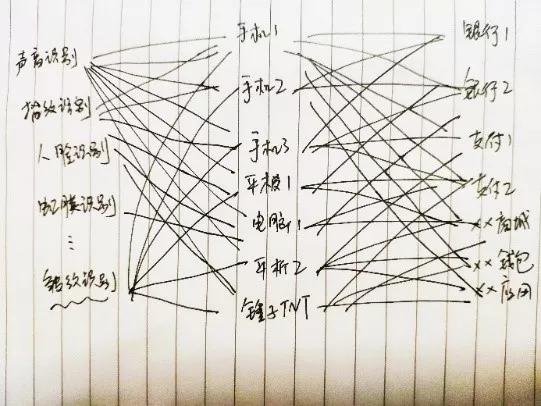 手机1
银行1
声音识别
手机2
银行2
指纹识别
手机3
支付1
人脸识别
平板1
支付2
虹膜识别
电脑1
××商城
⋮
平板2
××钱包
识别
锤子TNT
××应用